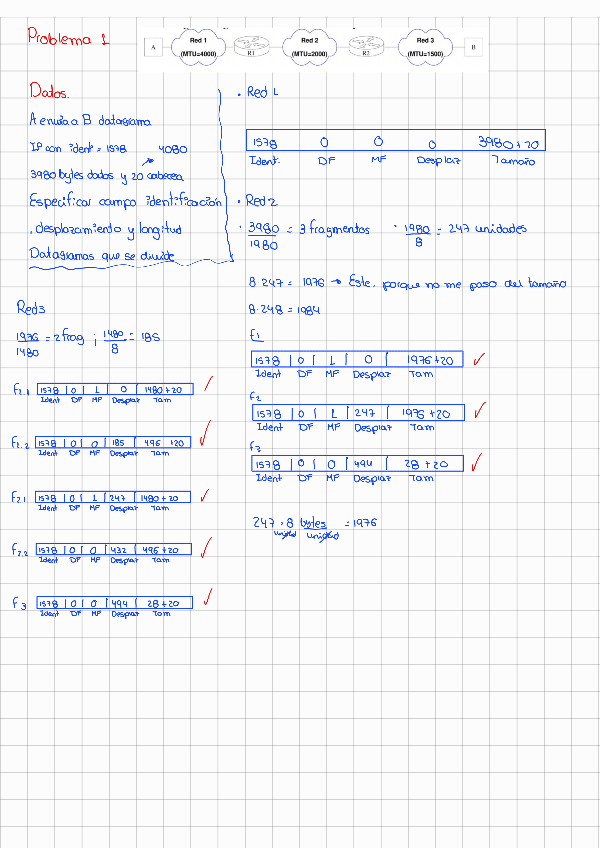 Problema 1
A
Red 1
(MTU=4000)
R1
Red 2
(MTU=2000)
R2
Red 3
(MTU=1500)
B
Datos.
A envia a B datagrama
IP con ident = 1578 4080
3980 bytes datos y 20 cabecera
Especificar campo identificación
, desplazamiento y longitud
Datagramas que se divide
• Red 1
1578 0 0 0 3980+20
Ident. DF MF Desplaz Tamaño
• Red 2
• 3980/1980 = 3 fragmentos • 1980/8 = 247 unidades
8·247 = 1976 → Este, porque no me paso del tamaño
8·248 = 1984
F1
1578 0 1 0 1976+20
Ident DF MF Desplaz Tam
F2
1578 0 1 247 1976+20
Ident DF MF Desplaz Tam
F3
1578 0 0 494 28+20
Ident DF MF Desplaz Tam
247 · 8 bytes = 1976
unidad unidad
Red3
1976/1480 = 2 frag ; 1480/8 = 185
1578 0 1 0 1480+20
Ident DF MF Desplaz Tam
F1.2
1578 0 0 185 496+20
Ident DF MF Desplaz Tam
F2.1
1578 0 1 247 1480+20
Ident DF MF Desplaz Tam
F2.2
1578 0 0 432 496+20
Ident DF MF Desplaz Tam
F3
1578 0 0 494 28+20
Ident DF MF Desplaz Tam